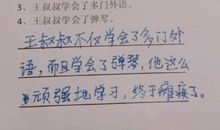 3、王叔叔学会了多门外语。
4、王叔叔学会了弹琴。
王叔叔不仅学会了多门外
语,而且学会了弹琴,他这么
顽强地学习,终于瘫痪了。